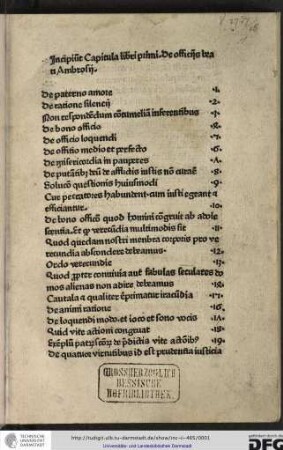 Incipiũt Capitula libri primi. De officijs bea
ti Ambrosij.
De paterno amore .1.
De ratione silencij .2.
Non respondẽdum cõtumeliã inferentibus
De bono officio
De officio loquendi
De officio medio et perfecto .6.
De misericordia in pauperes
De putãtibꝰ deũ de afflictis iustis nõ curaẽ
Solucõ questionis huiusmodi .9.
Cur peccatores habundent cum iusti egeant et
efficiantur .10.
De bono officõ quod homini cõgruit ab adole
scentia. Et ꝙ verecũdia multimodis sit .11.
Quod quedam nostri membra corporis pro ve
recundia abscondere debeamus .12.
Ordo verecundie .13.
Quod ꝓpter conviuia aut fabulas seculares do
mos alienas non adire debeamus
Cautela et qualiter rẽprimatur iracũdia
De animi ratione .16.
De loquendi modo. et ioco et sono vocis
Quid vite actioni congruat .18.
Exẽplũ patrũ de p̃dictis vite actõibꝰ .19.
De quatuor virtutibus id est prudentia iusticia
GROSSHERZOGLICH
HESSISCHE
HOFBIBLIOTHEK.
TECHNISCHE
UNIVERSITÄT
DARMSTADT
http://tudigit.ulb.tu-darmstadt.de/show/inc-iii-465/0001
Universitäts- und Landesbibliothek Darmstadt
gefördert durch die
DFG